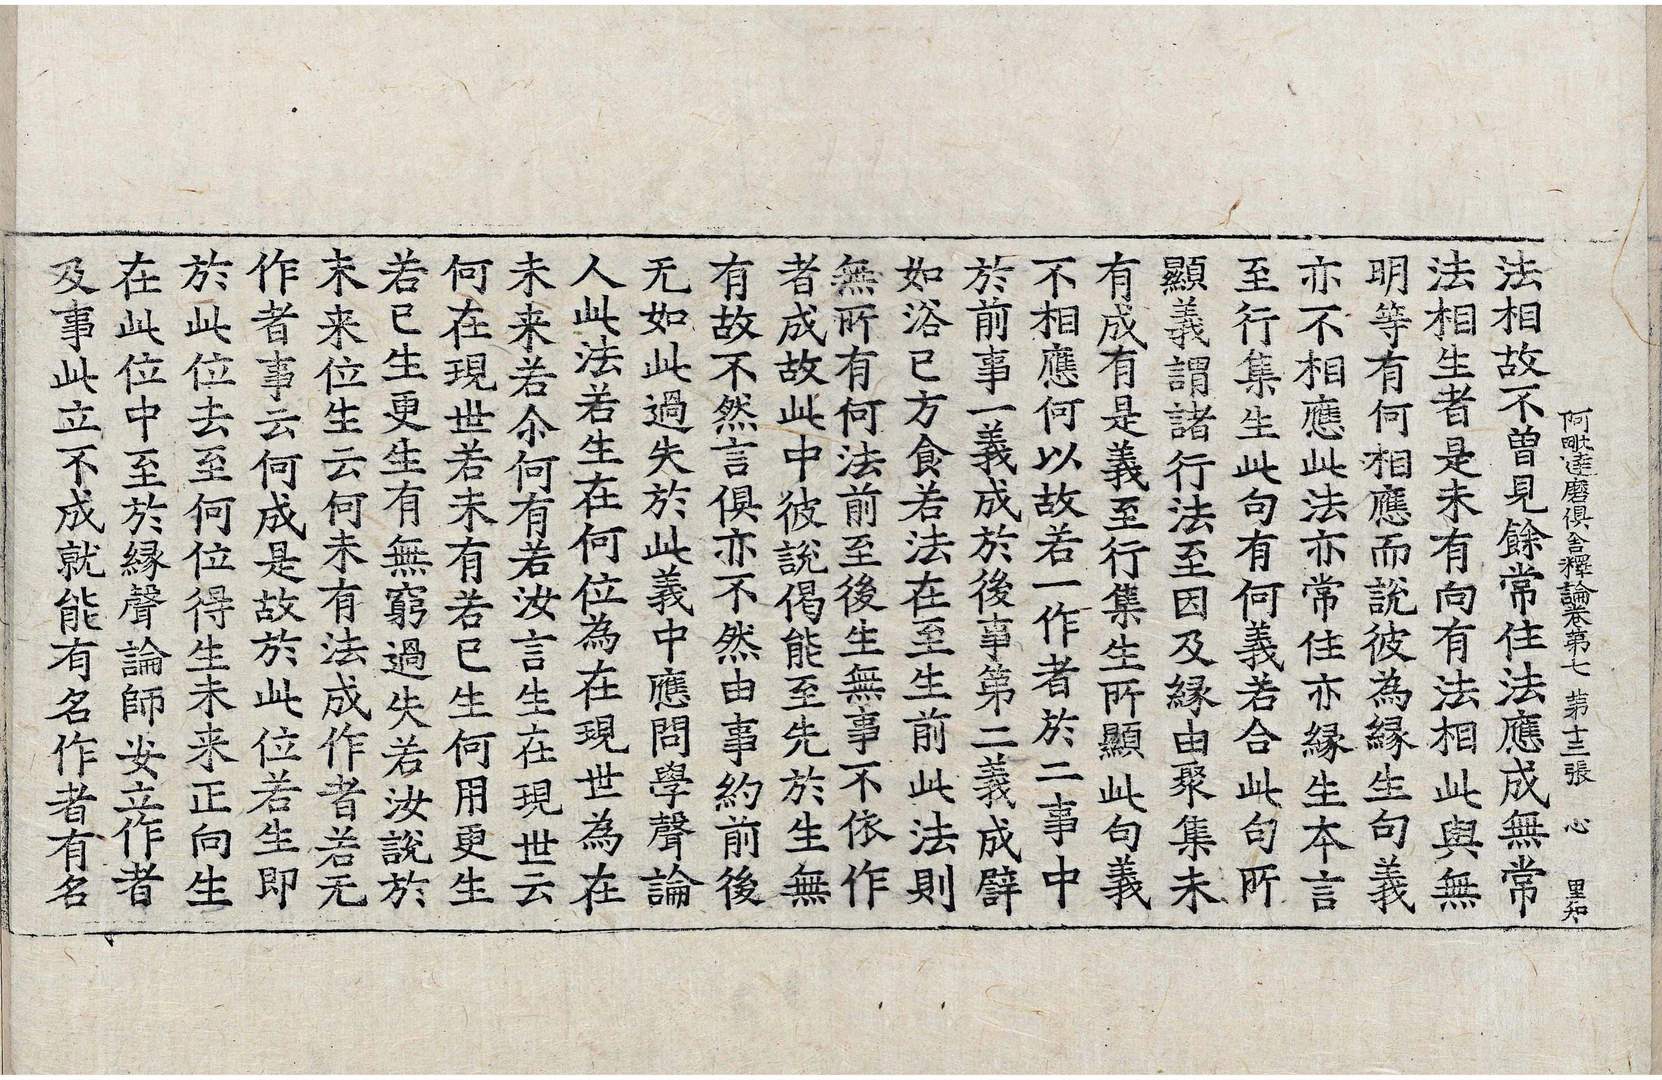 阿毗達磨俱舍釋論卷第七 第十三張 心 里和
法相故不曾見餘常住法應成無常
法相生者是未有向有法相此與無
明等有何相應而說彼為緣生句義
亦不相應此法亦常住亦緣生本言
至行集生此句有何義若合此句所
顯義謂諸行法至因及緣由聚集未
有成有是義至行集生所顯此句義
不相應何以故若一作者於二事中
於前事一義成於後事第二義成譬
如浴已方食若法在至生前此法則
無所有何法前至後生無事不依作
者成故此中彼說偈能至先於生無
有故不然言俱亦不然由事約前後
无如此過失於此義中應問學聲論
人此法若生在何位為在現世為在
未来若尒何有若汝言生在現世云
何在現世若未有若已生何用更生
若已生更生有無窮過失若汝說於
未来位生云何未有法成作者若无
作者事云何成是故於此位若生即
於此位去至何位得生未来正向生
在此位中至於緣聲論師安立作者
及事此立不成就能有名作者有名